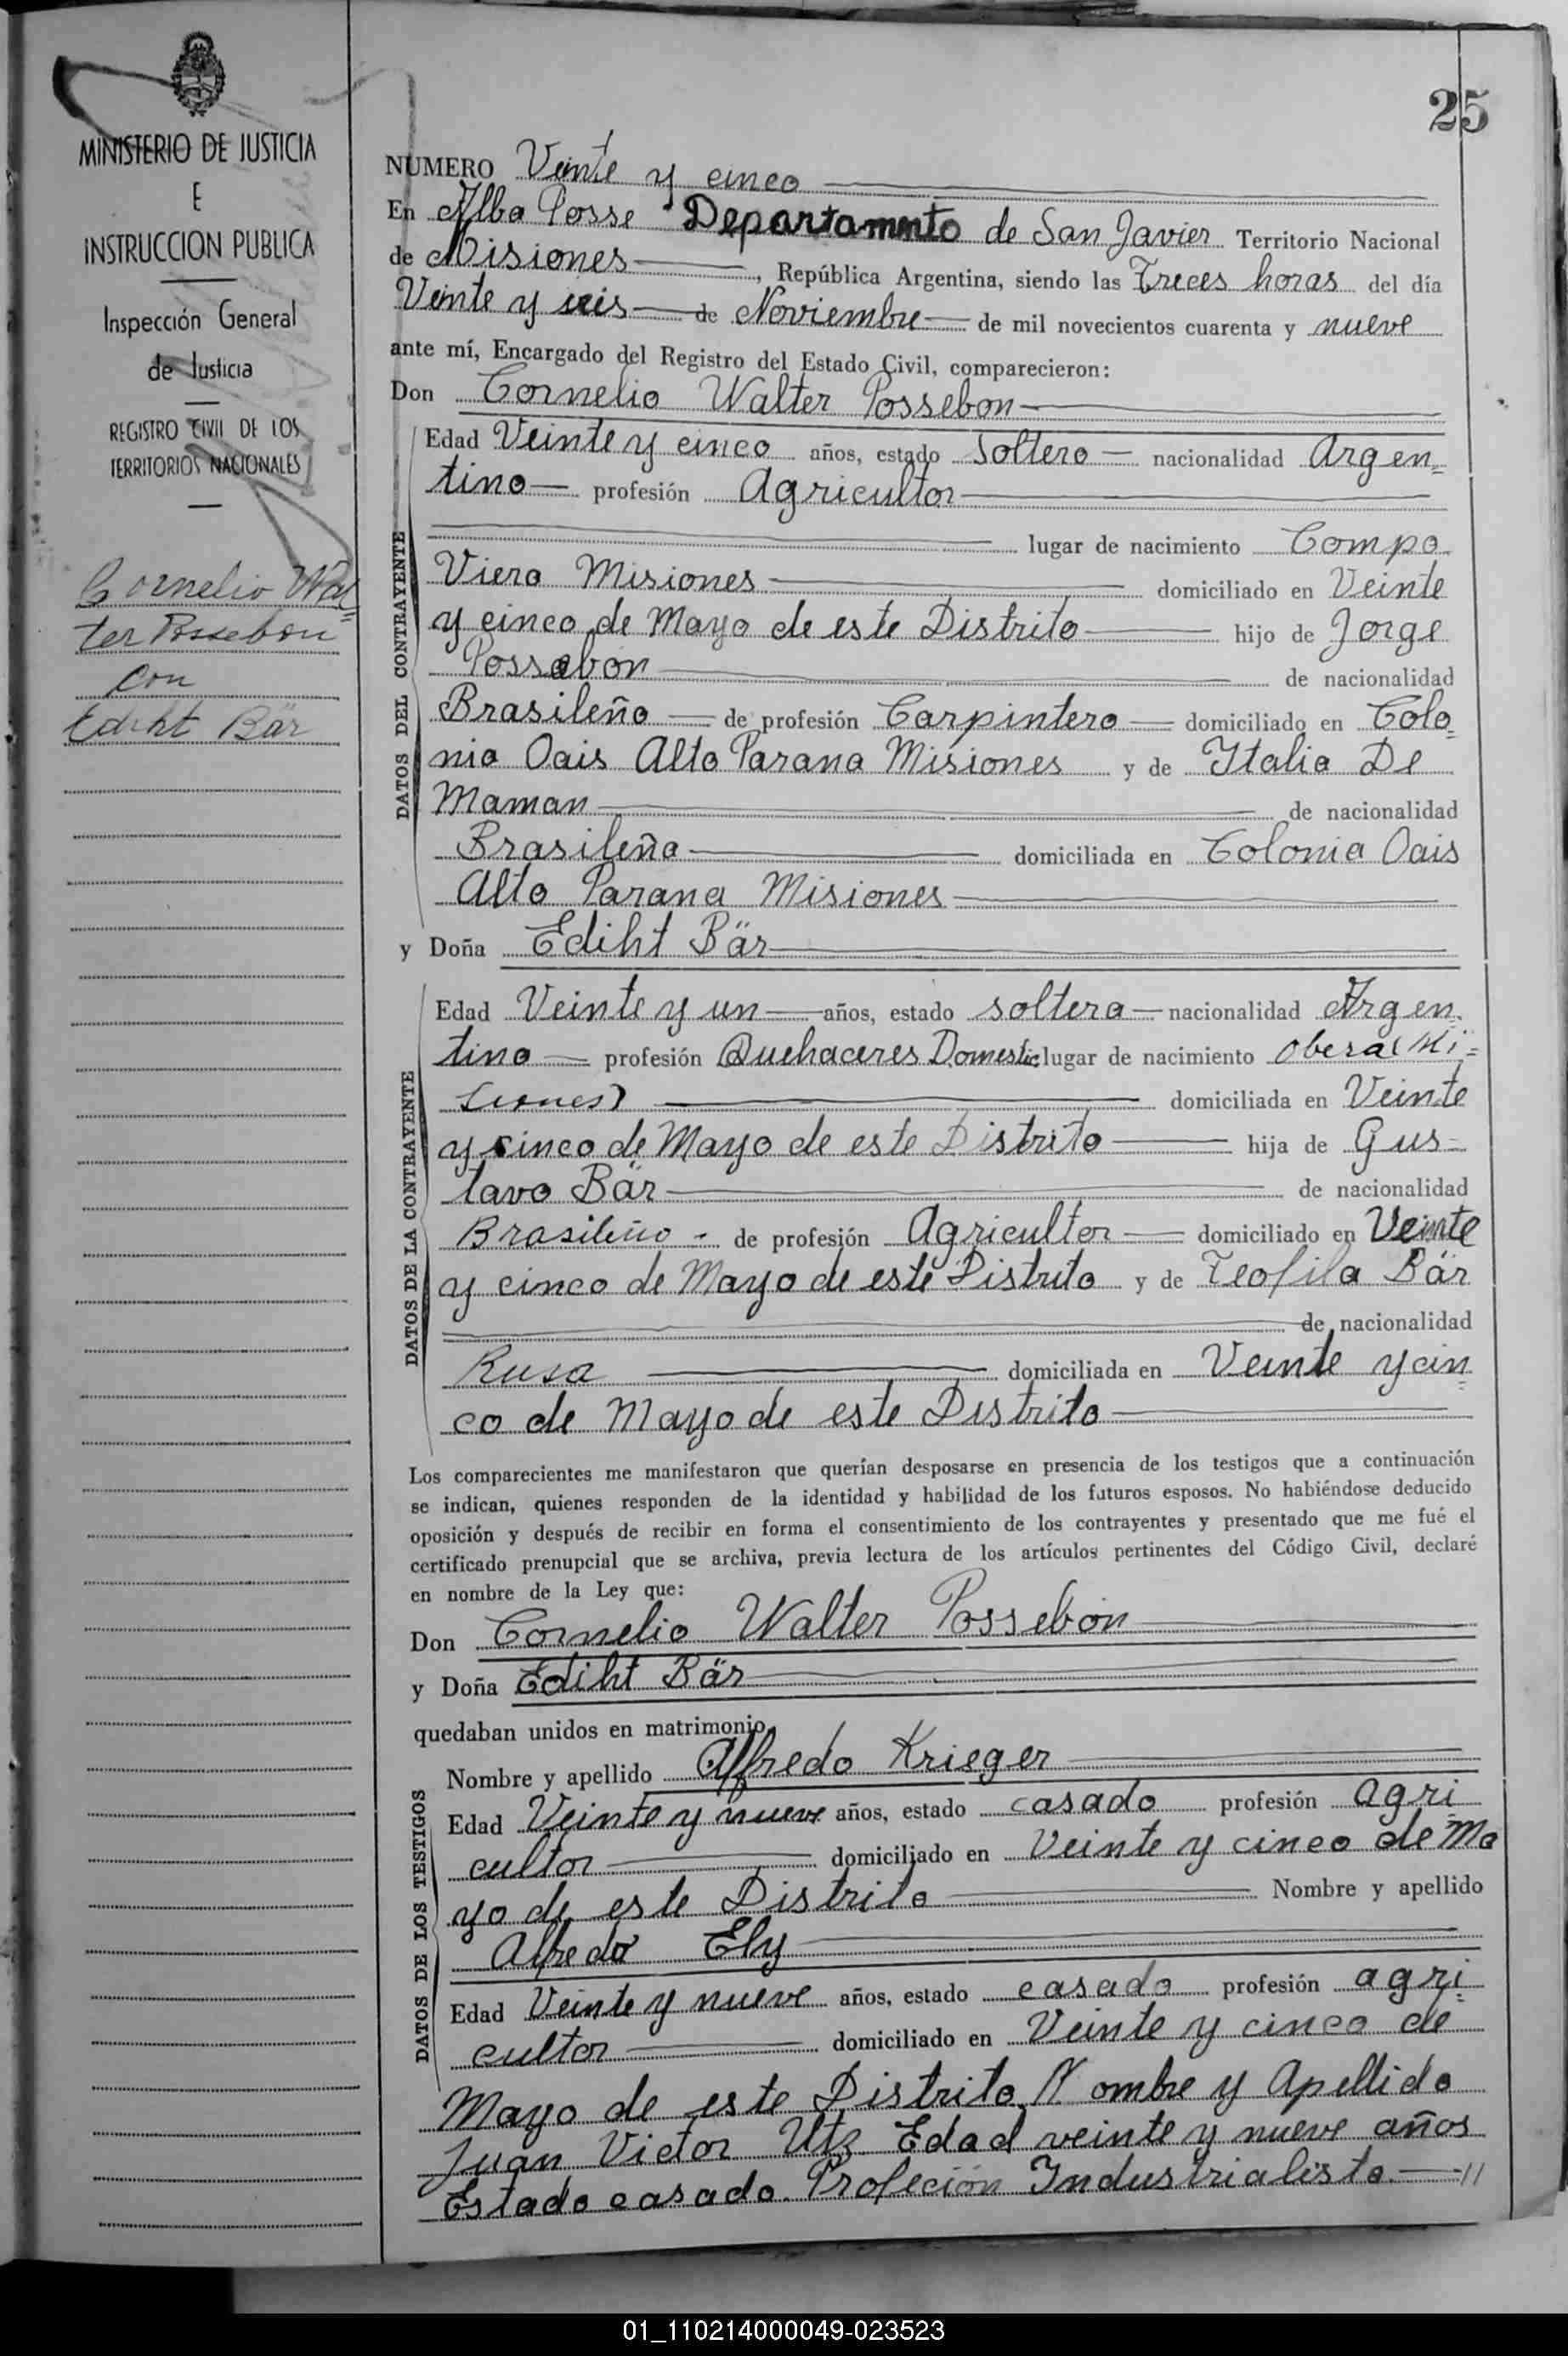 25
MINISTERIO DE JUSTICIA
E
INSTRUCCION PUBLICA
Inspección General
de Justicia
REGISTRO CIVIL DE LOS
TERRITORIOS NACIONALES
Cornelio Wal=
ter Possebon
con
Ediht Bär
NUMERO Veinte y cinco
En Alba Posse Departamento de San Javier Territorio Nacional
de Misiones, República Argentina, siendo las Treces horas del día
Veinte y seis de Noviembre de mil novecientos cuarenta y nueve
ante mí, Encargado del Registro del Estado Civil, comparecieron:
Don Cornelio Walter Possebon
DATOS DEL CONTRAYENTE
Edad Veinte y cinco años, estado Soltero nacionalidad Argen=
tino profesión Agricultor
lugar de nacimiento Campo
Viera Misiones domiciliado en Veinte
y cinco de Mayo de este Distrito hijo de Jorge
Possebon de nacionalidad
Brasileño de profesión Carpintero domiciliado en Colo=
nia Oais Alto Parana Misiones y de Italia De
Maman de nacionalidad
Brasileña domiciliada en Colonia Oais
Alto Parana Misiones
y Doña Ediht Bär
DATOS DE LA CONTRAYENTE
Edad Veinte y un años, estado soltera nacionalidad Argen=
tina profesión Quehaceres Domestic lugar de nacimiento Obera (Mi=
siones) domiciliada en Veinte
y cinco de Mayo de este Distrito hija de Gus=
tavo Bär de nacionalidad
Brasileño - de profesión Agricultor domiciliado en Veinte
y cinco de Mayo de este Distrito y de Teofila Bär
de nacionalidad
Rusa domiciliada en Veinte y cin=
co de Mayo de este Distrito
Los comparecientes me manifestaron que querían desposarse en presencia de los testigos que a continuación
se indican, quienes responden de la identidad y habilidad de los futuros esposos. No habiéndose deducido
oposición y después de recibir en forma el consentimiento de los contrayentes y presentado que me fué el
certificado prenupcial que se archiva, previa lectura de los artículos pertinentes del Código Civil, declaré
en nombre de la Ley que:
Don Cornelio Walter Possebon
y Doña Ediht Bär
quedaban unidos en matrimonio.
DATOS DE LOS TESTIGOS
Nombre y apellido Alfredo Krieger
Edad Veinte y nueve años, estado casado profesión agri=
cultor domiciliado en Veinte y cinco de Ma
yo de este Distrito Nombre y apellido
Alfredo Ely
Edad Veinte y nueve años, estado casado profesión agri=
cultor domiciliado en Veinte y cinco de
Mayo de este Distrito. Nombre y Apellido
Juan Victor Utz Edad veinte y nueve años
Estado casado. Profeción Industrialista.—//
01_110214000049-023523